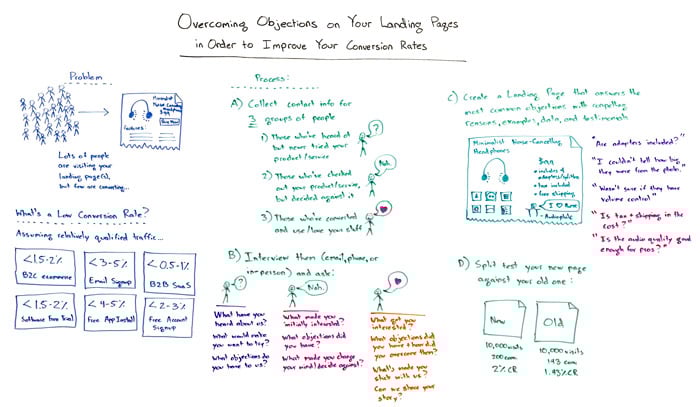 Overcoming Objections on Your Landing Pages
in Order to Improve Your Conversion Rates
Problem
Minimalist
Noise-Cancelling
Features:
Lots of people
are visiting your
landing page(s),
but few are converting...
What's a Low Conversion Rate?
Assuming relatively qualified traffic...
<1.5-2%
B2C ecommerce
<3-5%
Email Signup
<0.5-1%
B2B SaaS
<1.5-2%
Software Free Trial
<4-5%
Free App Install
<2-3%
Free Account
Signup
Process:
A) Collect contact info for
3 groups of people
1) Those who've heard of
but never tried your
product/service
?
2) Those who've checked
out your product/service,
but decided against it
Nah.
3) Those who've converted
and use/love your stuff
B) Interview them (email, phone, or
in-person) and ask:
?
Nah.
What have you
heard about us?
What would make
you want to try?
What objections do
you have to us?
What made you
initially interested?
What objections did
you have?
What made you change
your mind/decide against?
What got you
interested?
What objections did
you have & how did
you overcome them?
What's made you
stick with us?
Can we share your
story?
C) Create a Landing Page that answers the
most common objections with compelling
reasons, examples, data, and testimonials
Minimalist Noise-Cancelling
Headphones
• includes
adapters/splitter
• tax included
• free shipping
- Audiophile
"Are adapters included?"
"I couldn't tell how big
they were from the photo."
"Wasn't sure if they have
volume control"
"Is tax + shipping in the
cost?"
"Is the audio quality good
enough for pros?"
D) Split test your new page
against your old one:
New
10,000 visits
200 conv
2% CR
Old
10,000 visits
143 conv
1.43% CR